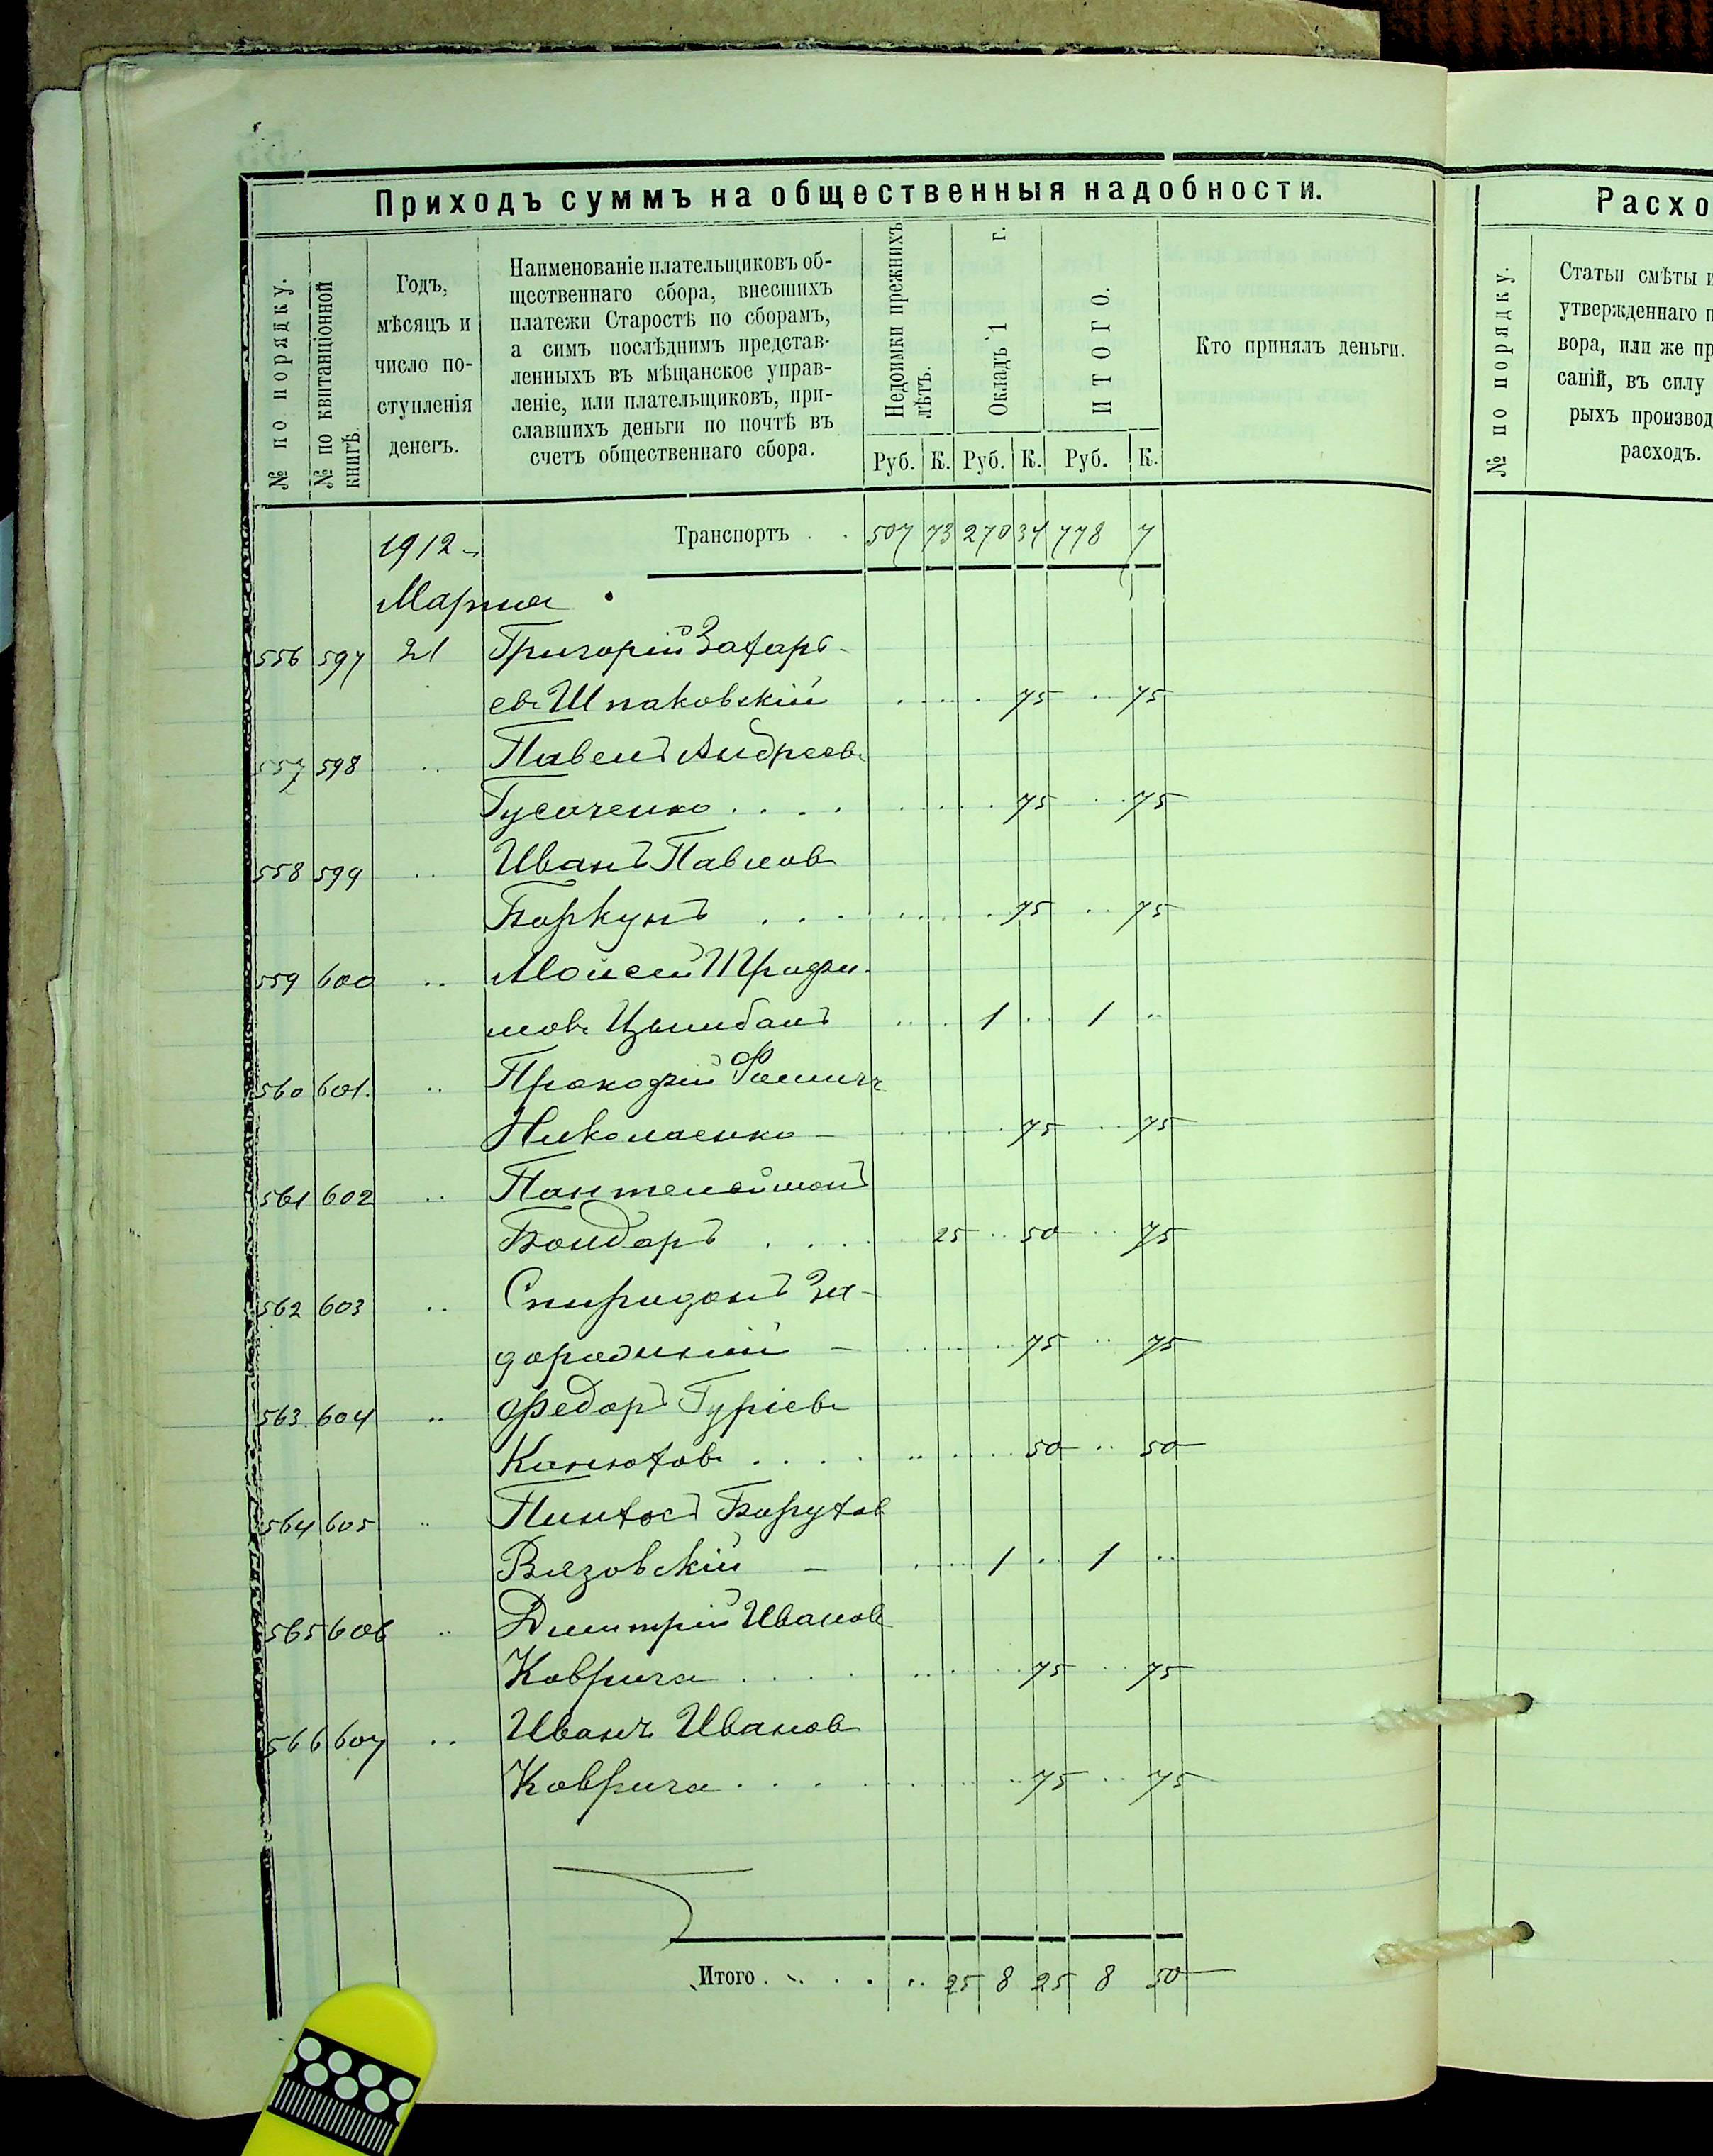 Приходъ суммъ на общественныя надобности.
№ по порядку.
№ по квитанціонной
книгѣ.
Годъ,
мѣсяцъ и
число по-
ступленія
денегъ.
Наименованіе плательщиковъ об-
щественнаго сбора, внесшихъ
платежи Старостѣ по сборамъ,
а симъ послѣднимъ представ-
ленныхъ въ мѣщанское управ-
леніе, или плательщиковъ, при-
славшихъ деньги по почтѣ въ
счетъ общественнаго сбора.
Недоимки прежнихъ
лѣтъ.
Окладъ 1 г.
ИТОГО.
Кто принялъ деньги.
Руб. К. Руб. К. Руб. К.
1912 Транспортъ . . 507 73 270 34 778 7
Марта
556 597 21 Григорій Захарь-
ев Шпаковскій 75 75
557 598 Павелъ Андреев
Гусаченко 75 75
558 599 Иванъ Павлов
Боркунъ 75 75
559 600 Мойсей Трофи-
мов Цымбалъ 1 1
560 601. Прокофій Фомичъ
Николаенко 75 75
561 602 Пантелеймонъ
Бондарь 25 50 75
562 603 Спиридонъ За-
дорожний 75 75
563 604 Федоръ Гуріев
Канюков 50 50
564 605 Пинхос Борухов
Вязовскій 1 1
565 606 Дмитрій Иванов
Коврига 75 75
566 607 Иванъ Иванов
Коврига 75 75
Итого 25 8 25 8 50
Расхо
№ по порядку.
Статьи смѣты и
утвержденнаго п
вора, или же пр
саній, въ силу
рыхъ производ
расходъ.